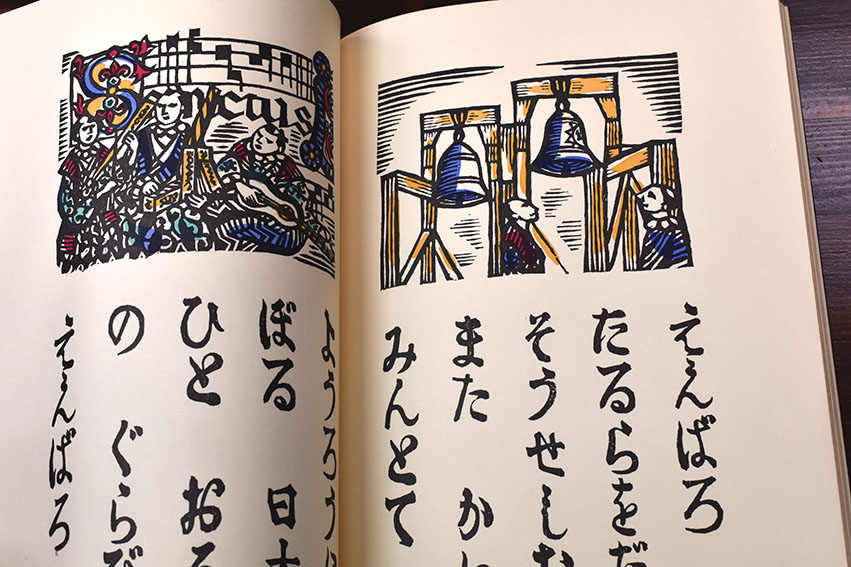 えゝんばろ
たるらをだ
そうせしむ
また か
みんとて
ようろう
ぼる 日本
ひと おる
の ぐらび
えゝんばろ